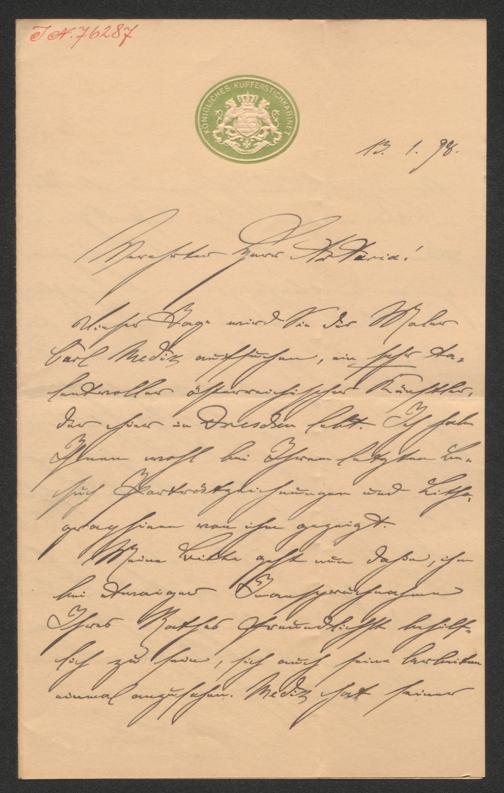 I.N. 76287
KÖNIGLICHES KUPFERSTICHKABINET
13. 1. 98.
Verehrter Herr Artaria!
Dieser Tage wird Sie der Maler
Carl Mediz aufsuchen, ein sehr ta-
lentvoller österreichischer Künstler,
der hier in Dresden lebt. Ich habe
Ihnen wohl bei Ihrem letzten Be-
such Porträtzeichnungen und Litho-
graphieen von ihm gezeigt.
Meine Bitte geht nun dahin, ihm
bei etwaiger Inanspruchnahme
Ihres Rathes freundlichst behilf-
lich zu sein, sich auch seine Arbeiten
einmal anzusehen. Mediz hat seiner